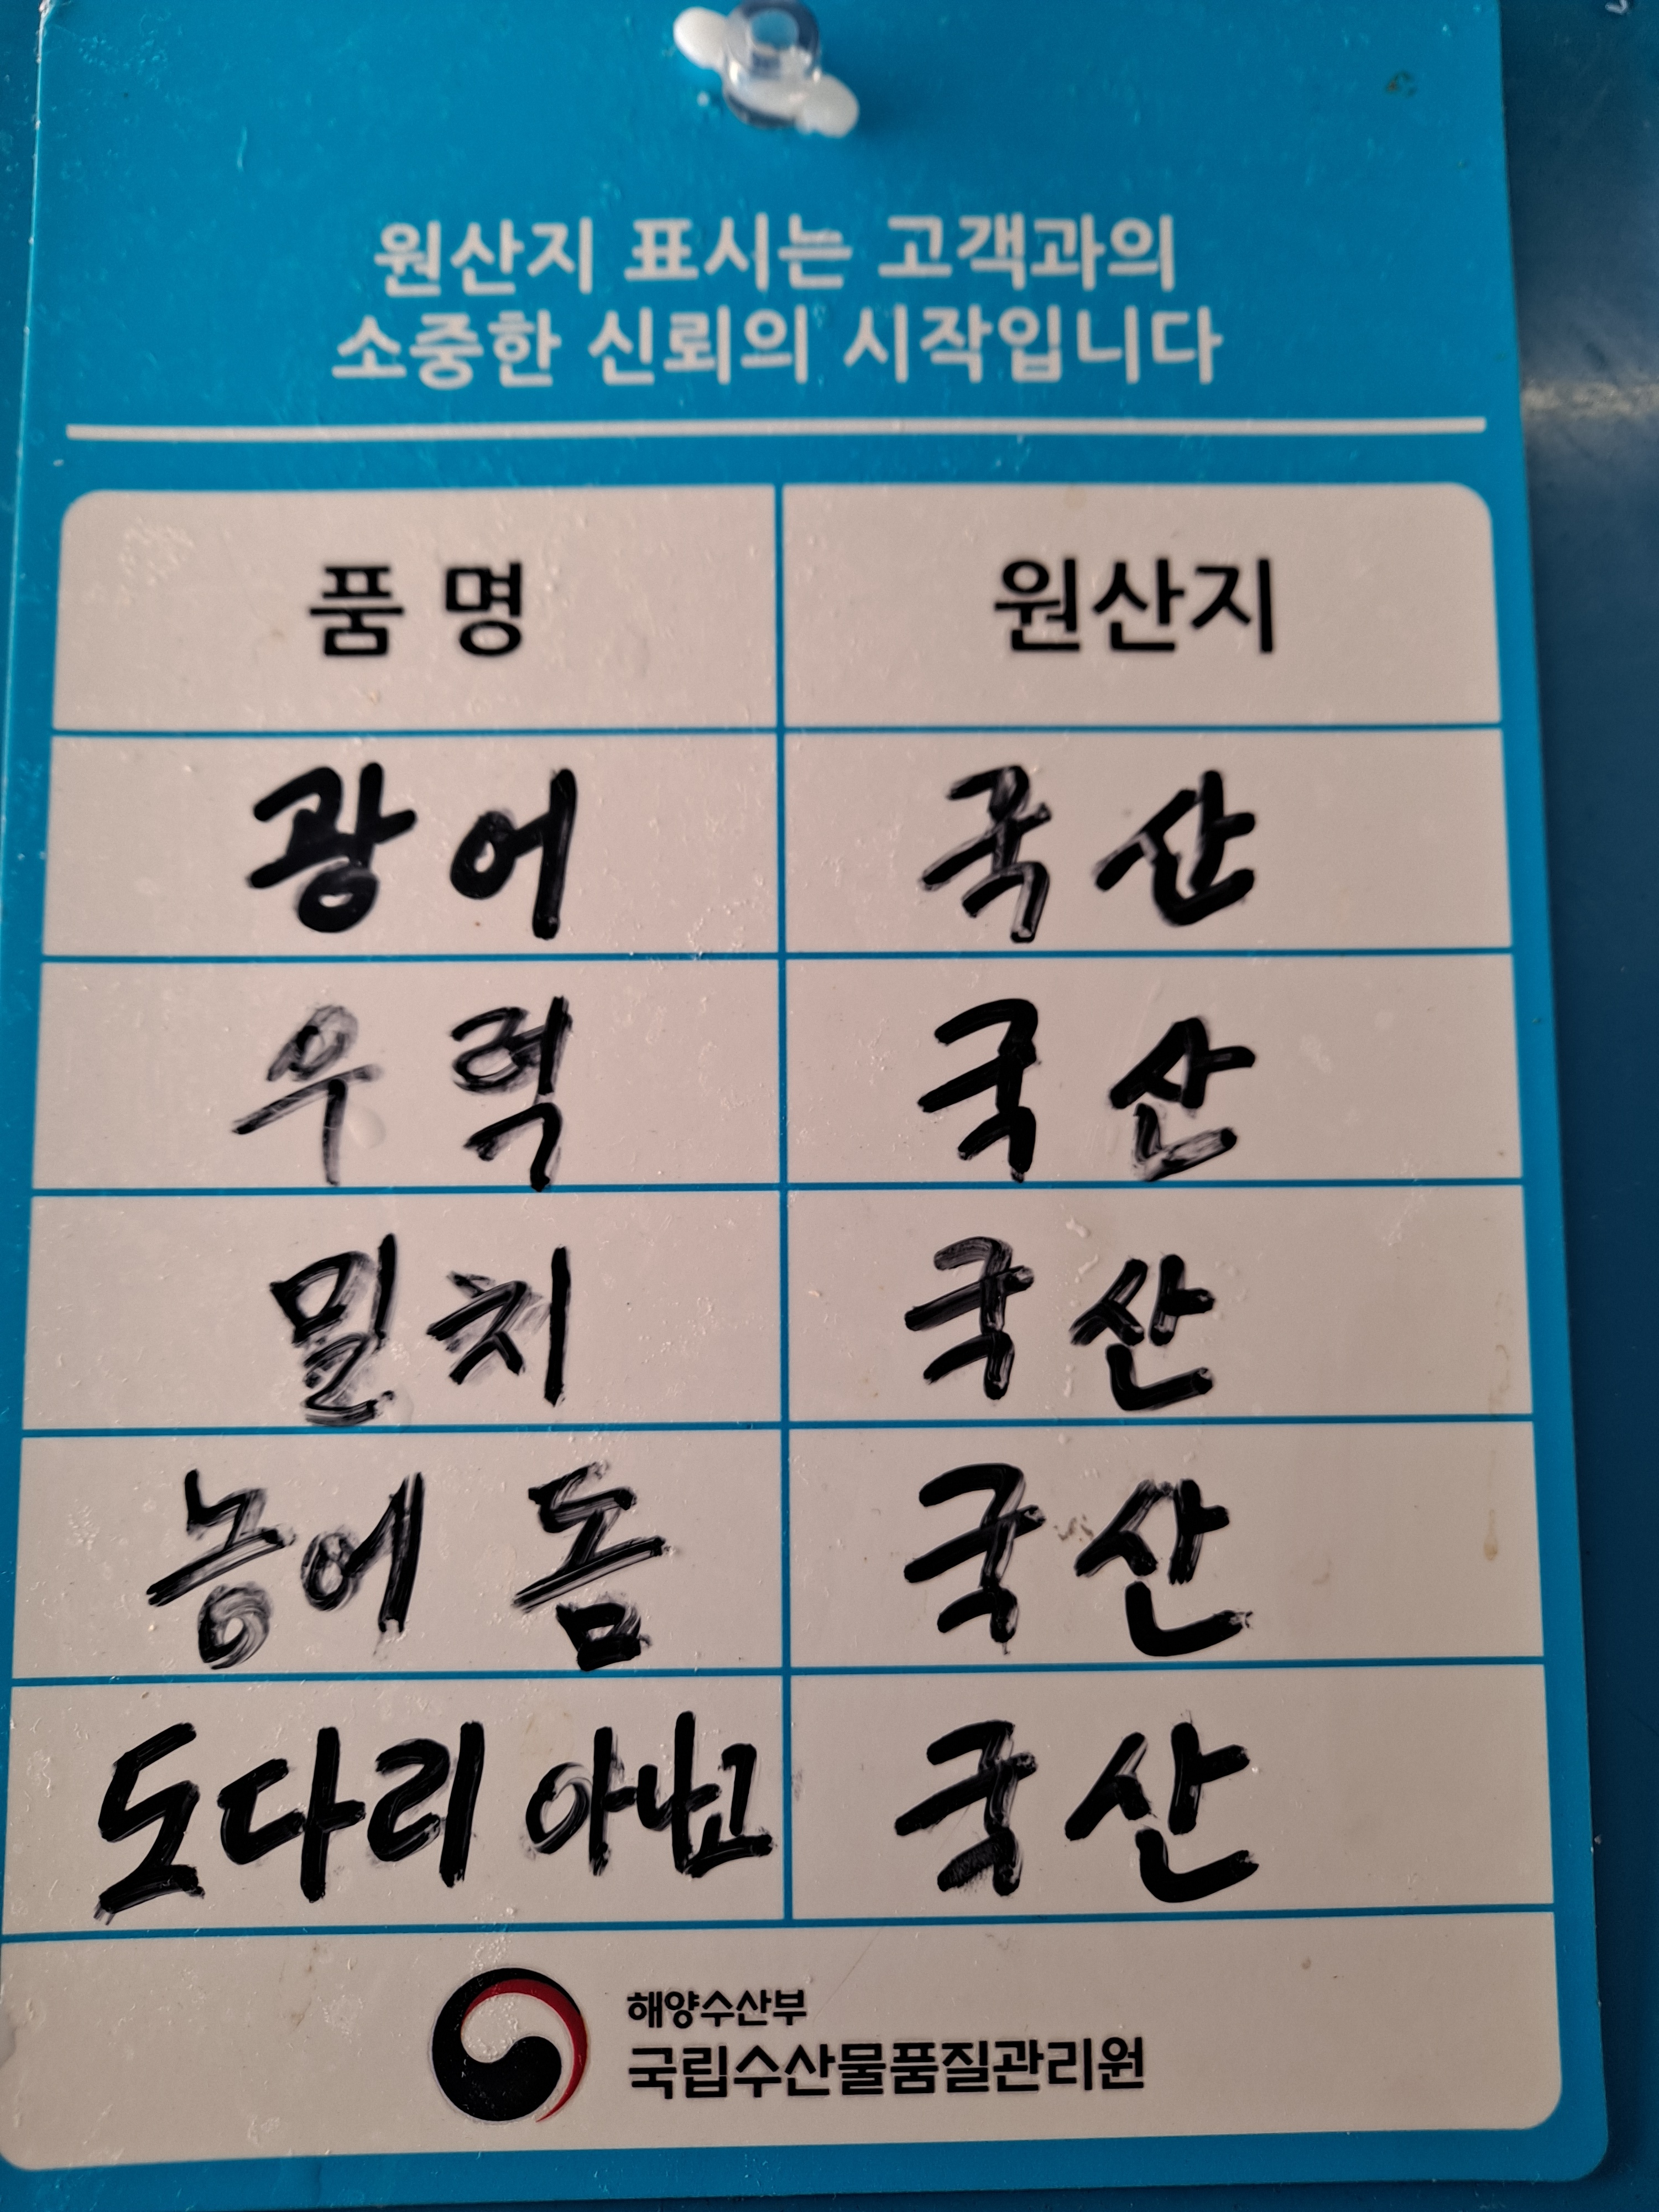 원산지 표시는 고객과의
소중한 신뢰의 시작입니다
품명 원산지
광어 국산
우럭 국산
밀치 국산
농어 돔 국산
도다리 아나고 국산
해양수산부
국립수산물품질관리원